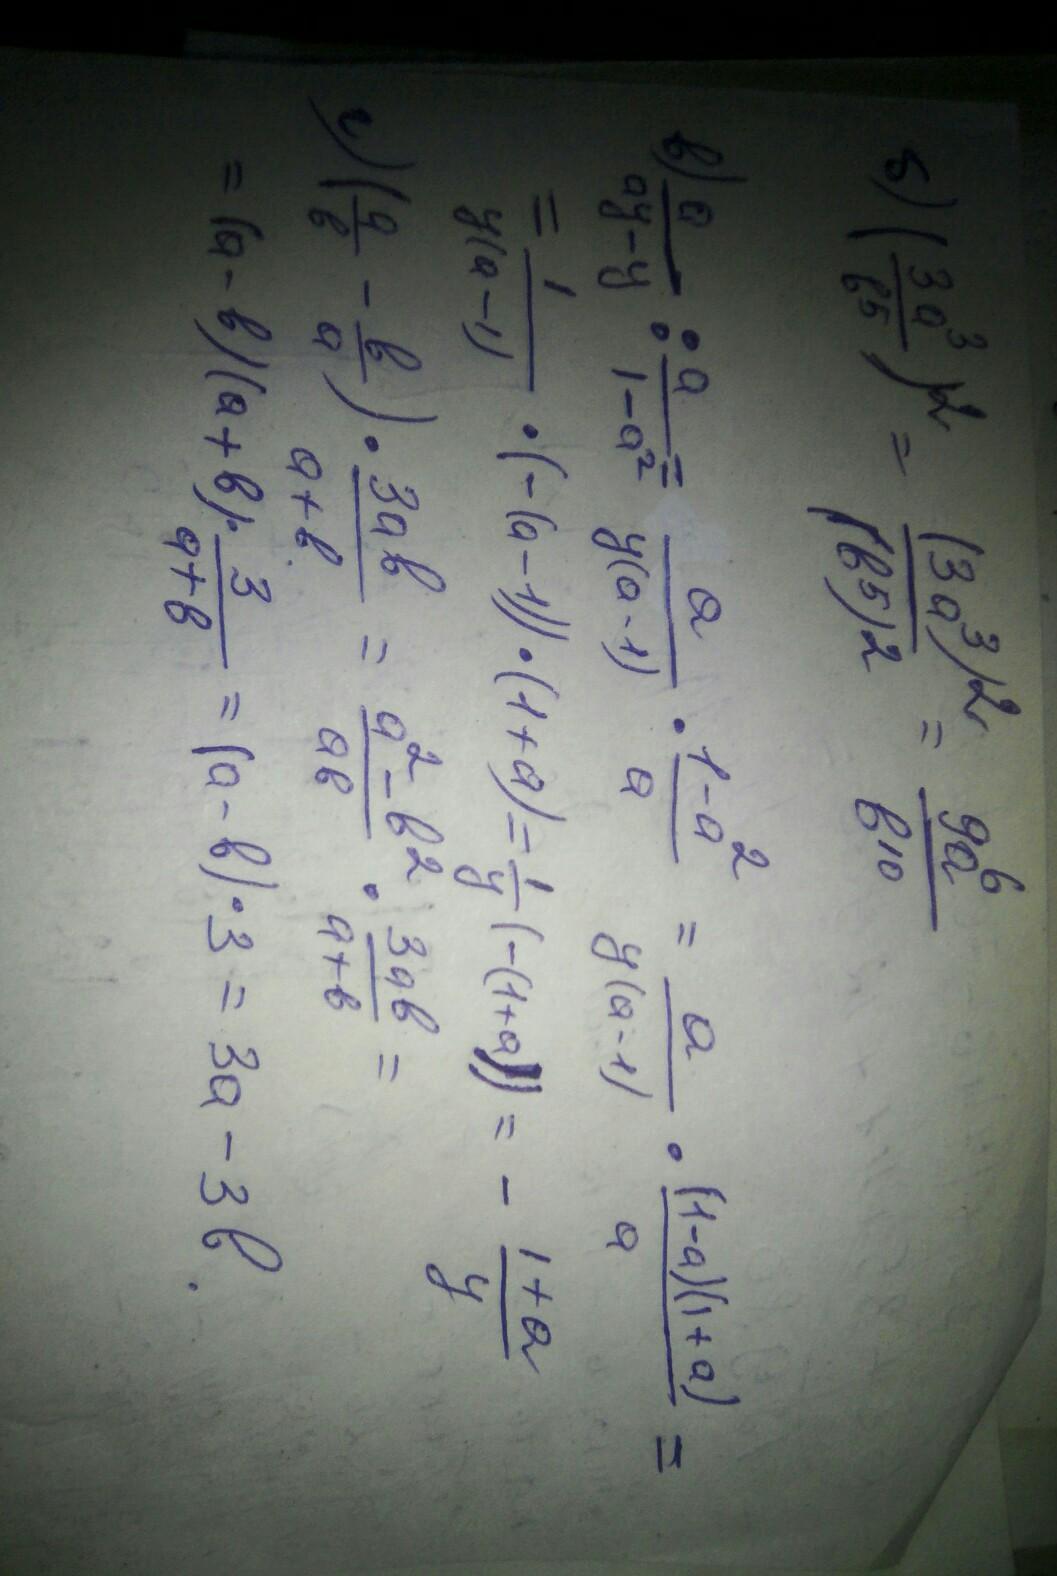 б) (3a³/b⁵)² = (3a³)²/(b⁵)² = 9a⁶/b¹⁰
в) a/(ay-y) : a/(1-a²) = a/(y(a-1)) · (1-a²)/a = a/(y(a-1)) · (1-a)(1+a)/a =
= 1/(y(a-1)) · (-(a-1)) · (1+a) = 1/y (-(1+a)) = - (1+a)/y
г) (a/b - b/a) · 3ab/(a+b) = (a²-b²)/ab · 3ab/(a+b) =
= (a-b)(a+b) · 3/(a+b) = (a-b) · 3 = 3a - 3b.